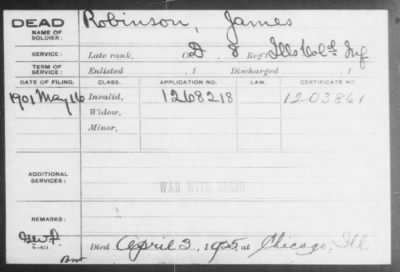 DEAD
NAME OF SOLDIER: Robinson, James
SERVICE: Late rank, Co. D, 8 Reg't Ills Col'd Inf
TERM OF SERVICE: Enlisted , 1 Discharged , 1
DATE OF FILING. CLASS. APPLICATION NO. LAW. CERTIFICATE NO.
1901 May 16 Invalid, 1268218 1203861
Widow,
Minor,
ADDITIONAL SERVICES:
WAR WITH SPAIN
REMARKS:
Died April 3, 1925, at Chicago, Ill